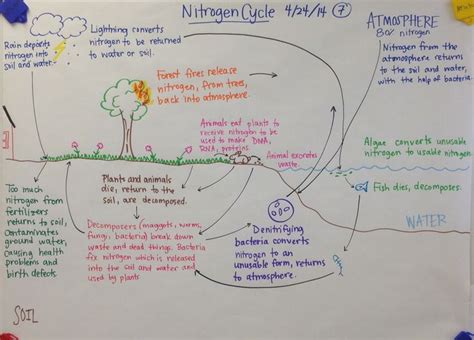 Nitrogen Cycle 4/24/14 7
Lightning converts
nitrogen to be returned
to water or soil.
Rain deposits
nitrogen into
soil and water.
ATMOSPHERE
80% nitrogen
Nitrogen from the
atmosphere returns
to the soil and water,
with the help of bacteria
Forest fires release
nitrogen, from trees,
back into atmosphere.
Animals eat plants to
receive nitrogen to be
used to make DNA,
RNA, proteins.
Animal excretes
waste.
Algae converts unusable
nitrogen to usable nitrogen
Fish dies, decomposes.
WATER
Plants and animals
die, return to the
soil, are decomposed.
Too much
nitrogen from
fertilizers
returns to soil,
contaminates
ground water,
causing health
problems and
birth defects
Decomposers (maggots, worms,
fungi, bacteria) break down
waste and dead things. Bacteria
fix nitrogen which is released
into the soil and water and
used by plants
Denitrifying
bacteria converts
nitrogen to an
unusable form, returns
to atmosphere.
SOIL